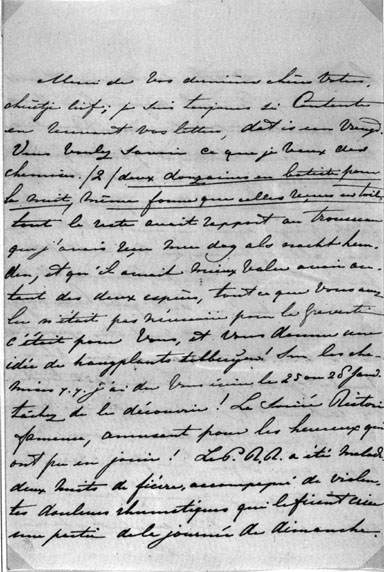 Merci de Vos dernières chères lettres,
lief; je suis toujours si Contente
en recevant vos lettres, dat is een
Vous voulez savoir ce que je veux des
chemises. /2/ deux douzaines en batiste pour
la nuit, même forme que celles reçues en toile,
tout le reste avait rapport au trousseau
que j'avais reçu
den, et qu'il aurait mieux valu avoir au-
tant des deux espèces, tout ce que Vous
n'était pas nécessaire pour le
c'était pour Vous, et Vous donner une
idée de Sur les che-
mises j'ai dû Vous écrire le 25 ou 26 Janv.
tâchez de le découvrir! La Soirée
fameuse, amusant pour les heureux qui
ont pu en jouir! Le P. R. A. a été malade
deux nuits de fièvre, accompagné de violen-
tes douleurs rhumatiques qui le firent crier
une partie de la journée de dimanche.